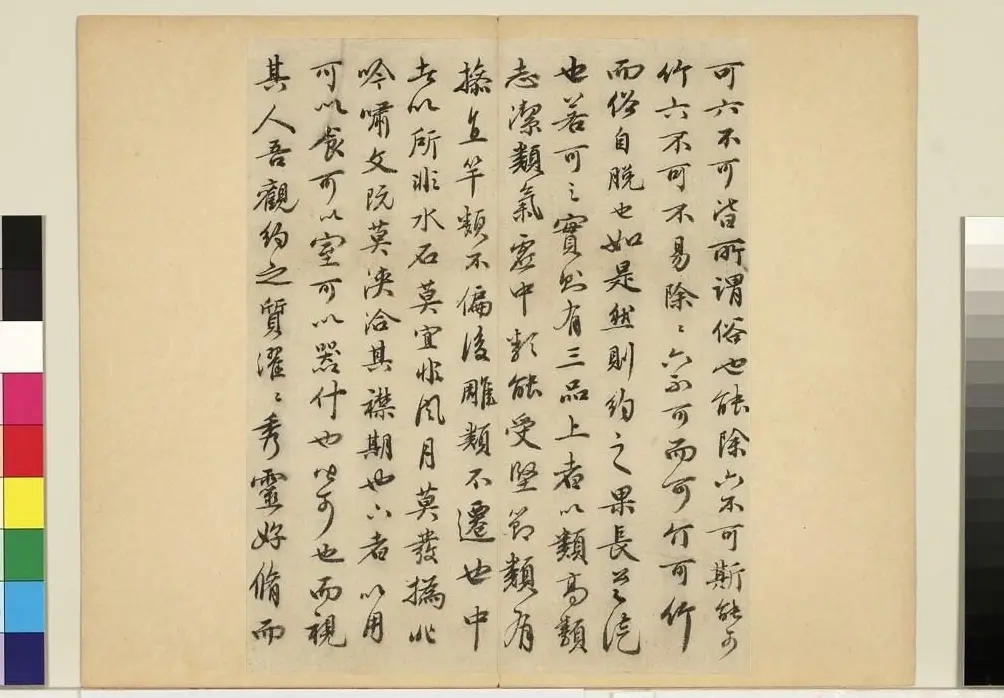 可六不可皆所謂俗也能除六不可斯能可
竹六不可不易除〻六不可而可竹可竹
而俗自脫也如是然則約之果長
也若可之實則有三品上者以類高類
志潔類氣虛中類能受堅節類有
操直竿類不偏後雕類不遷也中
者以所非水石莫宜非風月莫發摛非
吟嘯文阮莫浹洽其襟期也六者以用
可以食可以室可以器什也皆可也而視
其人吾觀約之質濯〻秀靈好脩而